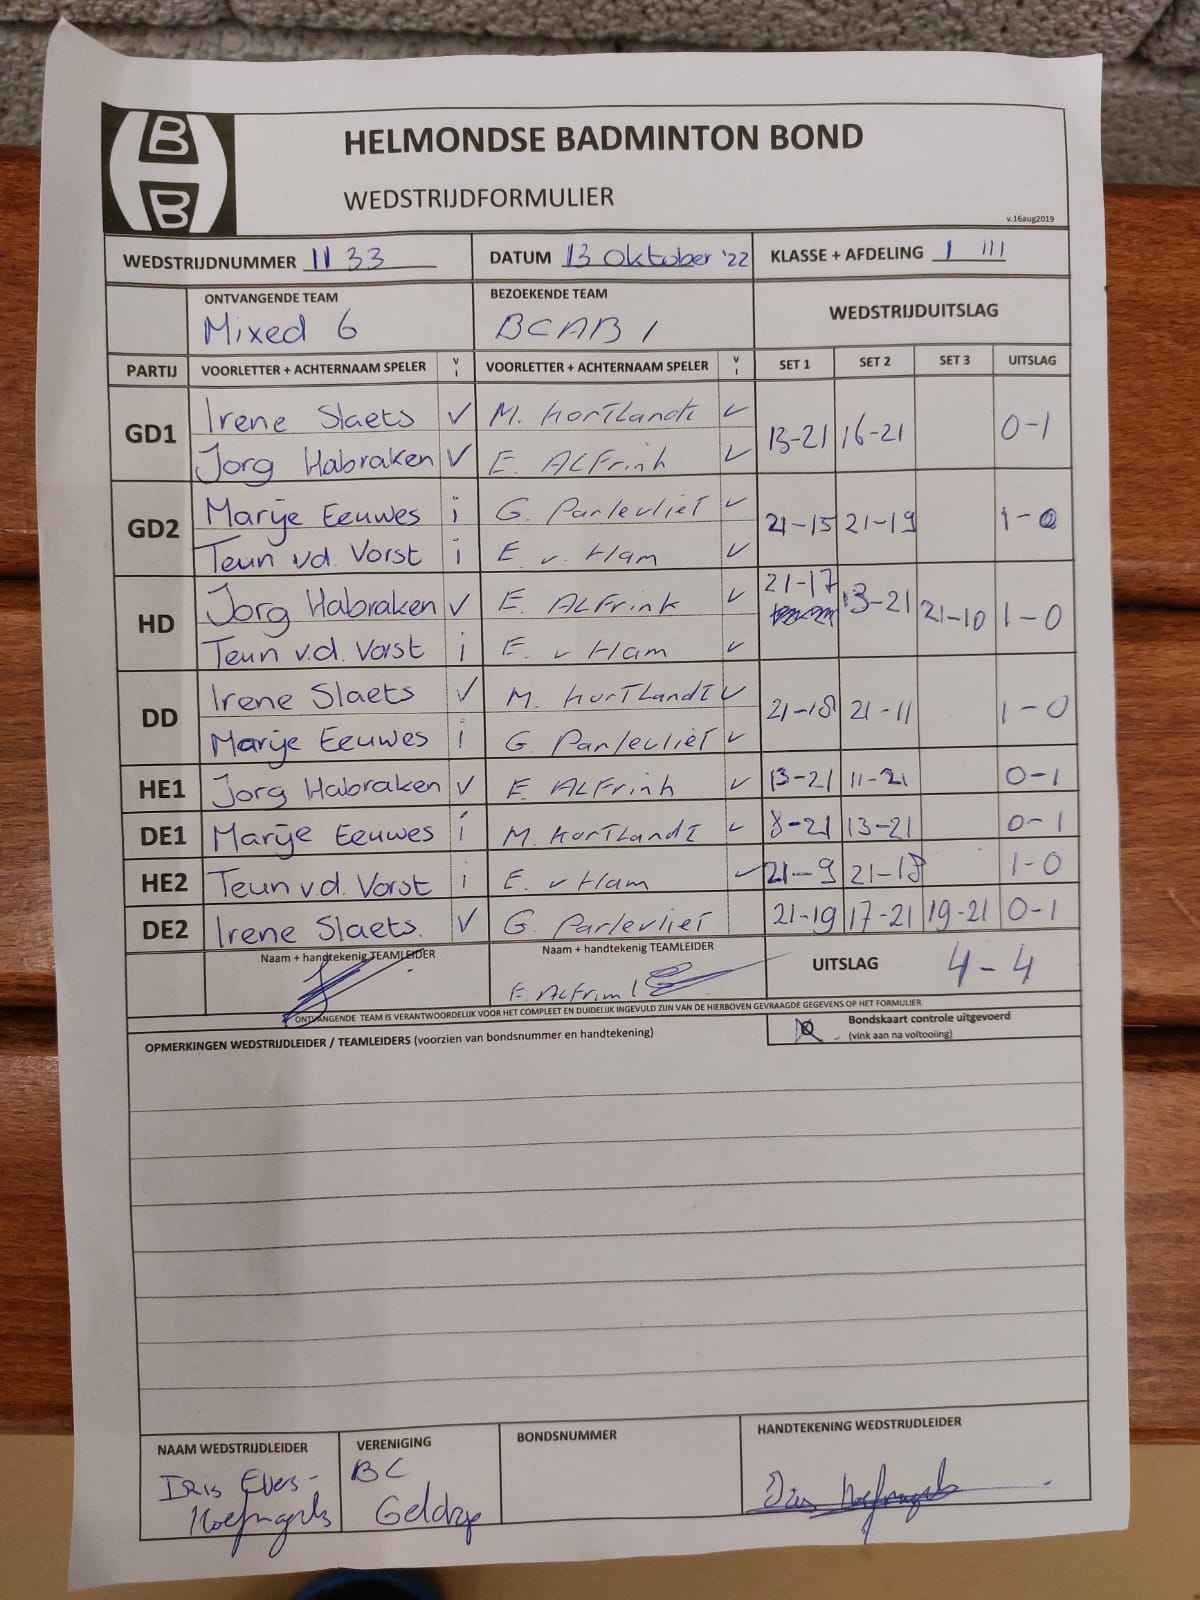 B
B
HELMONDSE BADMINTON BOND
WEDSTRIJDFORMULIER
v.16aug2019
WEDSTRIJDNUMMER 1133 DATUM 13 Oktober '22 KLASSE + AFDELING 1 III
ONTVANGENDE TEAM BEZOEKENDE TEAM WEDSTRIJDUITSLAG
Mixed 6 BCAB 1
PARTIJ VOORLETTER + ACHTERNAAM SPELER V I VOORLETTER + ACHTERNAAM SPELER V I SET 1 SET 2 SET 3 UITSLAG
GD1 Irene Slaets V M. Kortlandt V 13-21 16-21 0-1
Jorg Habraken V E. Alfrink V
GD2 Marije Eeuwes i G. Parlevliet V 21-15 21-19 1-0
Teun v.d. Vorst i E. v. Ham V
HD Jorg Habraken V E. Alfrink V 21-17 13-21 21-10 1-0
Teun v.d. Vorst i E. v Ham V
DD Irene Slaets V M. Kortlandt V 21-18 21-11 1-0
Marije Eeuwes i G. Parlevliet V
HE1 Jorg Habraken V E. Alfrink V 13-21 11-21 0-1
DE1 Marije Eeuwes i M. Kortlandt V 8-21 13-21 0-1
HE2 Teun v.d. Vorst i E. v Ham V 21-9 21-18 1-0
DE2 Irene Slaets. V G. Parlevliet 21-19 17-21 19-21 0-1
Naam + handtekenig TEAMLEIDER Naam + handtekenig TEAMLEIDER UITSLAG 4-4
E. Alfrink
ONTVANGENDE TEAM IS VERANTWOORDELIJK VOOR HET COMPLEET EN DUIDELIJK INGEVULD ZIJN VAN DE HIERBOVEN GEVRAAGDE GEGEVENS OP HET FORMULIER
OPMERKINGEN WEDSTRIJDLEIDER / TEAMLEIDERS (voorzien van bondsnummer en handtekening) Bondskaart controle uitgevoerd
(vink aan na voltooiing)
NAAM WEDSTRIJDLEIDER VERENIGING BONDSNUMMER HANDTEKENING WEDSTRIJDLEIDER
Iris Evers- BC
Hoefnagels Geldrop
Iris Hoefnagels